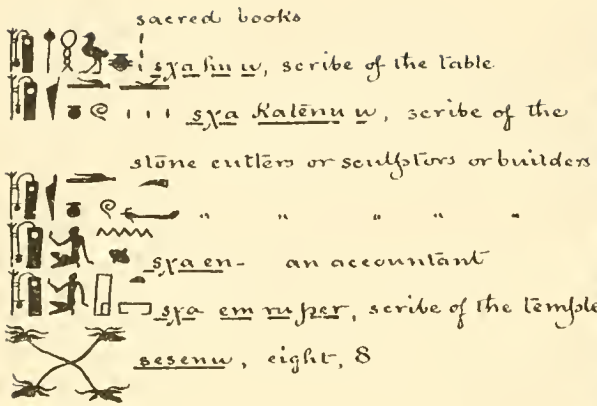 sacred books
sχa hu w, scribe of the table
sχa Katēnu w, scribe of the
stōne cutlers or sculptors or builders
" " " " "
sχa en- an accountant
sχa em ru per, scribe of the temple
sesenu, eight, 8